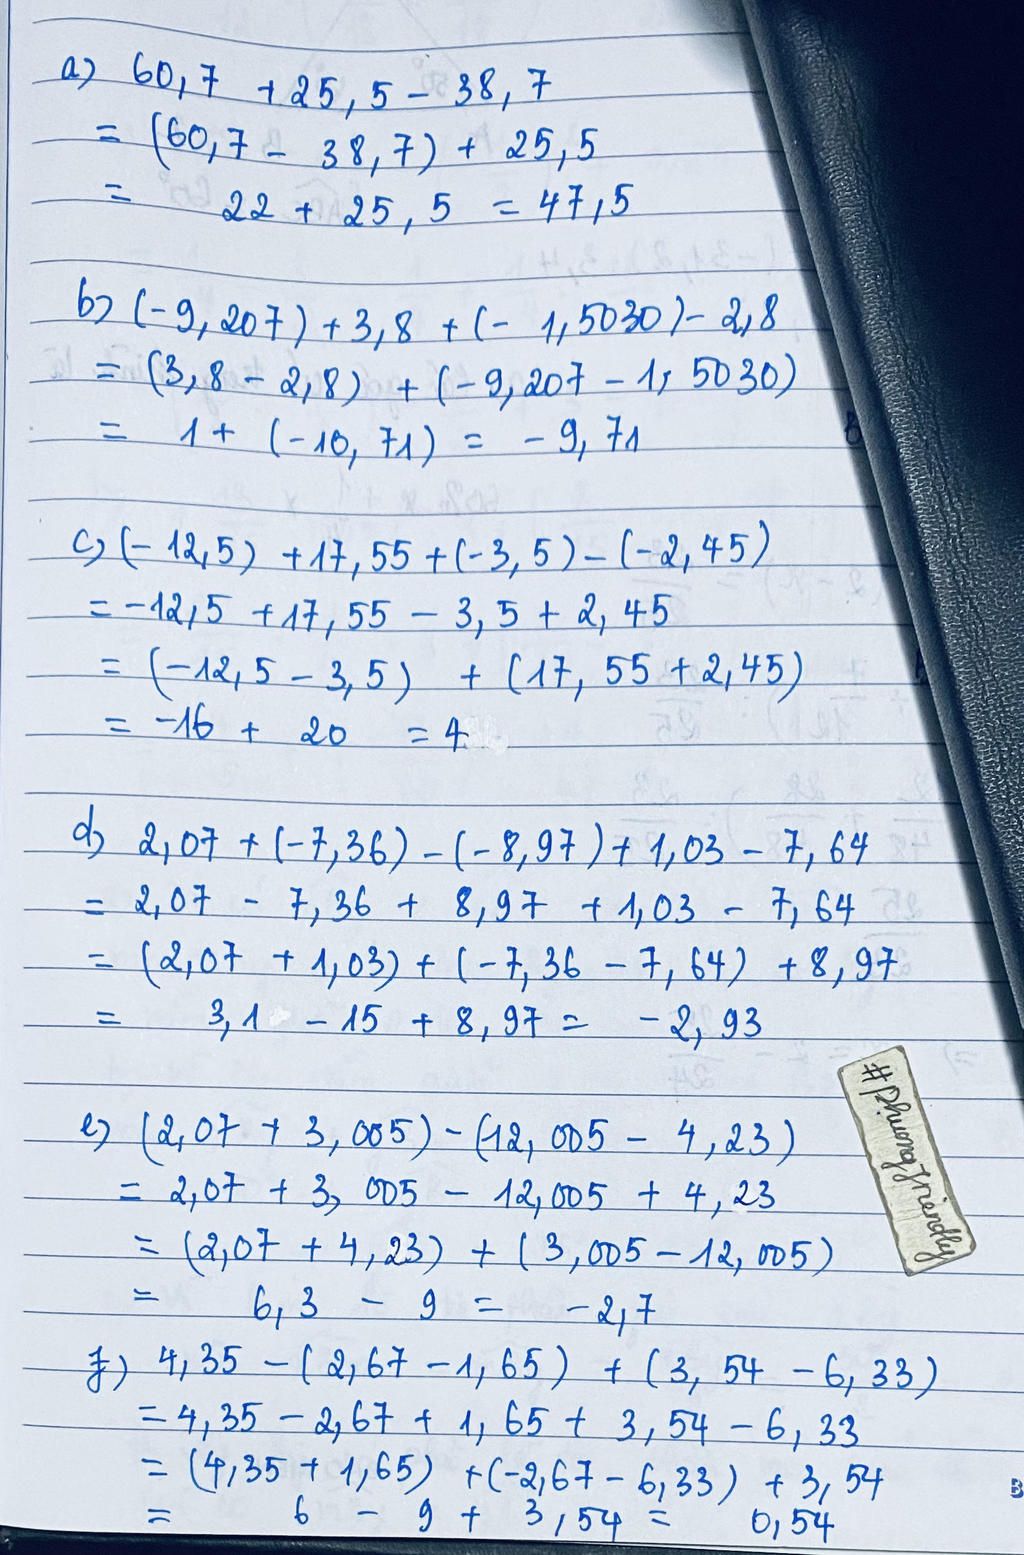 a) 60,7 + 25,5 - 38,7
= (60,7 - 38,7) + 25,5
= 22 + 25,5 = 47,5
b) (-9,207) + 3,8 + (-1,5030) - 2,8
= (3,8 - 2,8) + (-9,207 - 1,5030)
= 1 + (-10,71) = -9,71
c) (-12,5) + 17,55 + (-3,5) - (-2,45)
= -12,5 + 17,55 - 3,5 + 2,45
= (-12,5 - 3,5) + (17,55 + 2,45)
= -16 + 20 = 4
d) 2,07 + (-7,36) - (-8,97) + 1,03 - 7,64
= 2,07 - 7,36 + 8,97 + 1,03 - 7,64
= (2,07 + 1,03) + (-7,36 - 7,64) + 8,97
= 3,1 - 15 + 8,97 = -2,93
#Phuongfriendly
e) (2,07 + 3,005) - (12,005 - 4,23)
= 2,07 + 3,005 - 12,005 + 4,23
= (2,07 + 4,23) + (3,005 - 12,005)
= 6,3 - 9 = -2,7
f) 4,35 - (2,67 - 1,65) + (3,54 - 6,33)
= 4,35 - 2,67 + 1,65 + 3,54 - 6,33
= (4,35 + 1,65) + (-2,67 - 6,33) + 3,54
= 6 - 9 + 3,54 = 0,54